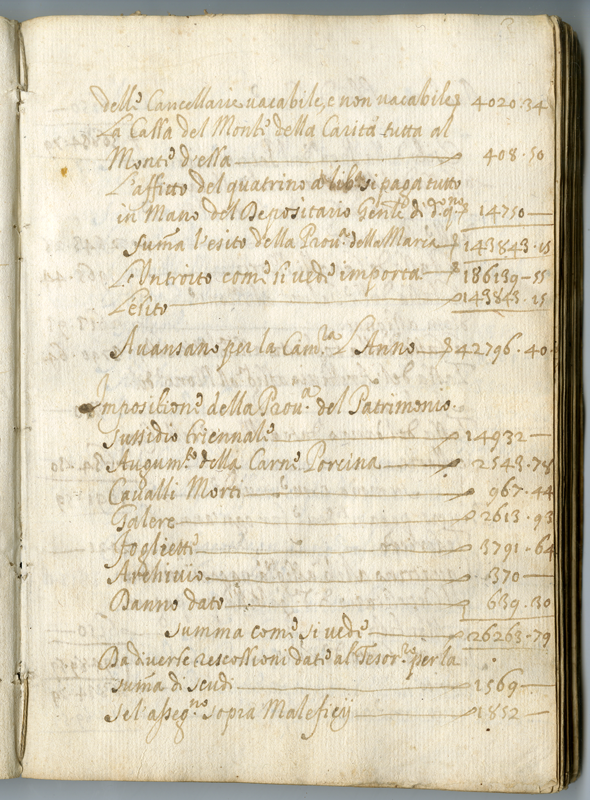 delle Cancellarie vacabile, e non vacabile 4020.34
La Cassa del Monte della Carità tutta al
Monte d'essa 408.50
L'affitto del quatrino a lib.ª si paga tutto
in Mano del Depositario Gen.le di d.o 14750
Summa l'esito della Prou.ª della Marca 143843.15
L'Introito come si vede importa 18639-55
L'esito 143843.15
Auansano per la Cam.ra L'Anno 42796.40
Impositione della Prou.ª del Patrimonio
Sussidio triennale 14932
Augum.to della Carne Porcina 2543.78
Cavalli Morti 967.44
Galere 2613.93
Fogliette 3791.64
Archiuio 370
Danno dato 639.30
Summa come si vede 26263.79
Da diverse rescossioni date al Tesor.re per la
summa di scudi 1569
Se l'asseg.no sopra Maleficij 1852